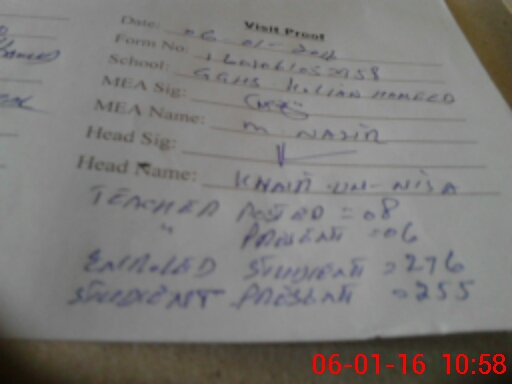 Visit Proof
Date: 06-01-2016
Form No:
School: GGHS
MEA Sig:
MEA Name: M. NASIR
Head Sig:
Head Name: KHAIR-UN-NISA
TEACHER POSTED = 08
" PRESENT = 06
ENROLLED STUDENT = 276
STUDENT PRESENT = 255
06-01-16 10:58